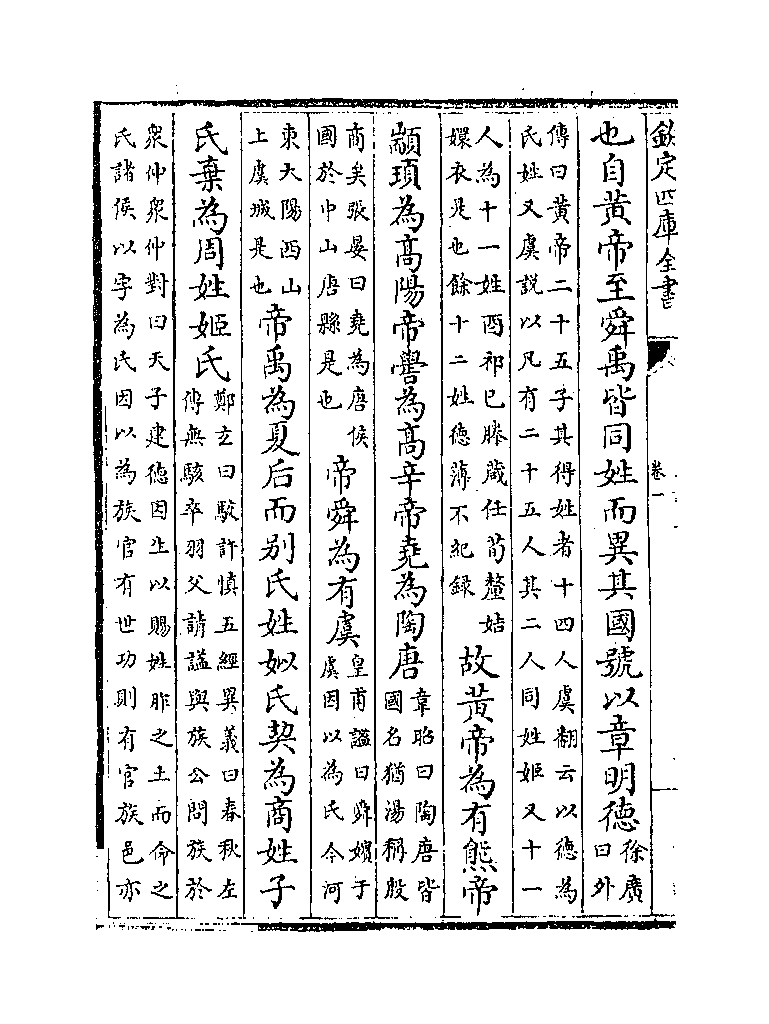 欽定四庫全書
卷一
也自黃帝至舜禹皆同姓而異其國號以章明德
徐廣
曰外
傳曰黃帝二十五子其得姓者十四人虞翻云以德為
氏姓又虞説以凡有二十五人其二人同姓姬又十一
人為十一姓酉祁巳滕葴任荀釐姞
嬛衣是也餘十二姓德薄不紀録
故黃帝為有熊帝
顓頊為高陽帝嚳為高辛帝堯為陶唐
韋昭曰陶唐皆
國名猶湯稱殷
商矣張晏曰堯為唐侯
國於中山唐縣是也
帝舜為有虞
皇甫謐曰舜嬪于
虞因以為氏今河
東大陽西山
上虞城是也
帝禹為夏后而別氏姓姒氏契為商姓子
氏棄為周姓姬氏
鄭玄曰駮許慎五經異義曰春秋左
傳無駭卒羽父請謚與族公問族於
衆仲衆仲對曰天子建德因生以賜姓胙之土而命之
氏諸侯以字為氏因以為族官有世功則有官族邑亦